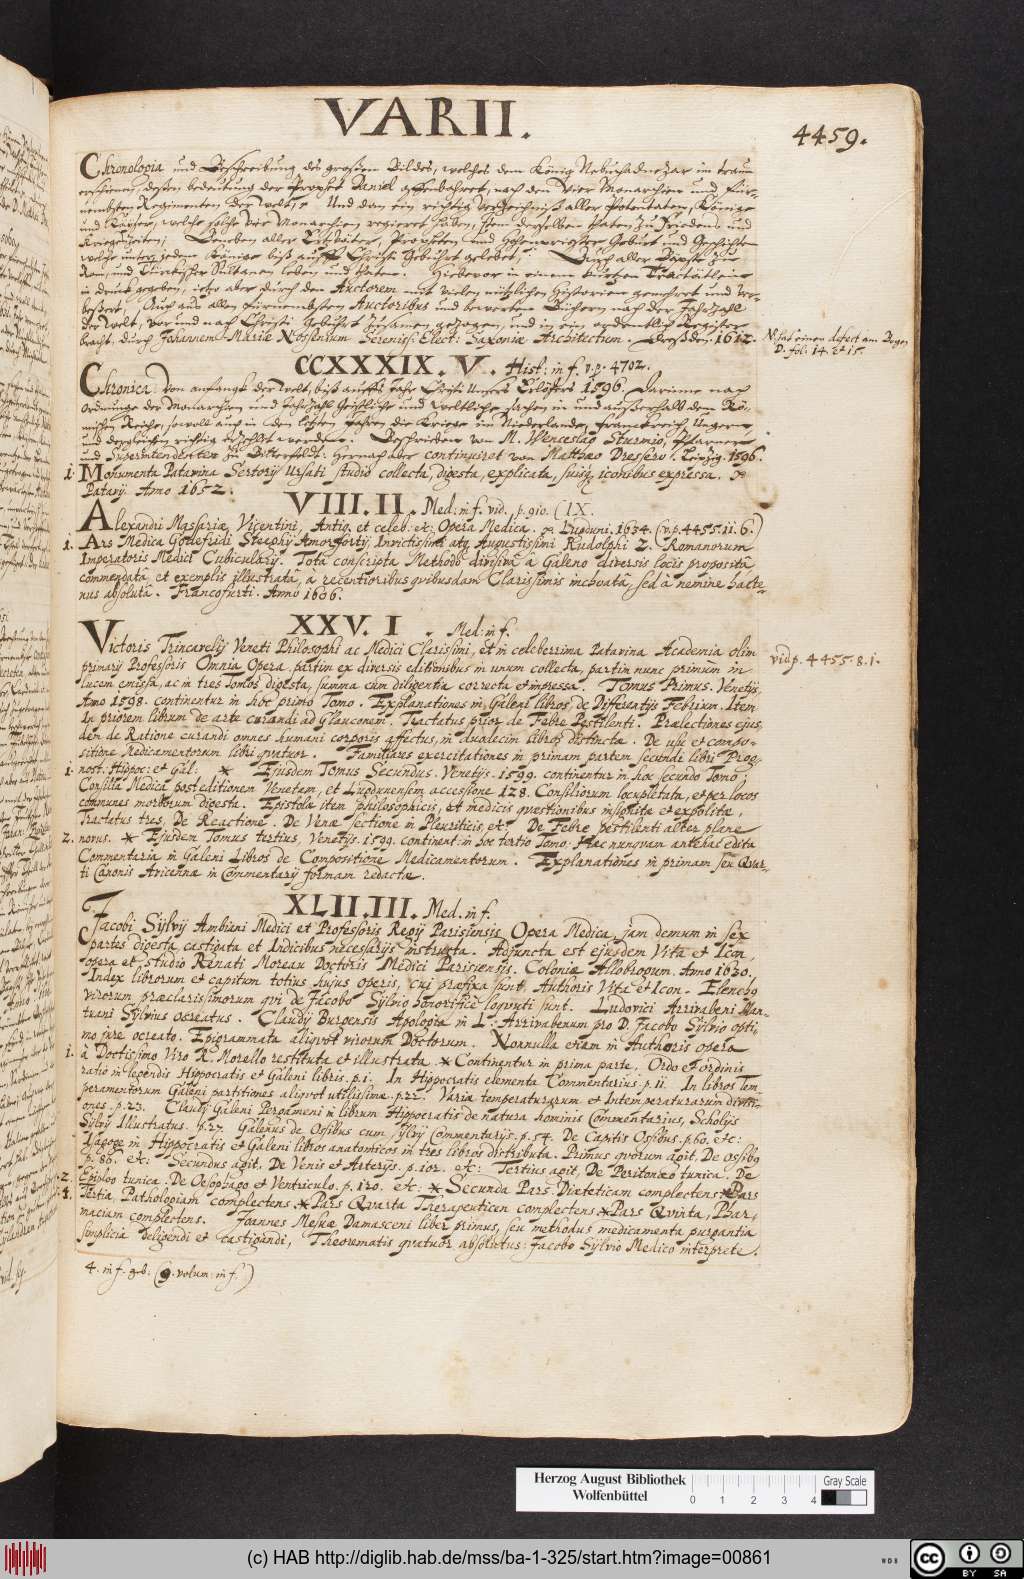 VARII.
4459.
Chronologia und Beschreibung des grossen Bildes, welches dem König Nebuchadnezar im traum
erschienen, dessen bedeutung der Prophet Daniel offenbahret, nach den Vier Monarchien und für-
nembsten Regimenten der Welt, Und dan ein richtig Verzeichniß aller Potentaten, Könige
und Kayser, welche solche Vier Monarchien regieret haben, Item derselben thaten zu Friedens und
Kriegszeiten; Beneben aller Ertzväter, Propheten und Hohenpriester Geburt und Geschichten
welche unter jedem Könige biß auffs Christi Gebuhrt gelebet; Auch aller Päpste zu
Rom, und Türckischer Sultanen leben und thaten. Hiebevor in einem kurtzen Tractätlein
in druck gegeben, itzo aber durch den Auctorem mit vielen nützlichen Historien gemehret und ver-
bessert, Auch aus allen fürnembsten Auctoribus und bewerten Büchern nach der Jahrzahl
der Welt, vor und nach Christi gebuhrt zusamen gezogen, und in ein ordentlich Register
bracht, durch Johannem Mariæ Nossenium Sereniss: Elect: Saxoniæ Architectum. Dreßden. 1612.
N. hat einen defect am Bogen
D. fol. 14. et 15.
CCXXXIX. V. Hist: in f. v.p. 4702.
Chronica Von anfangk der welt, biß auffs Jahr Christi Unsers Erlösers 1596. Darinne nach
Ordnunge der Monarchien und Jahrzahl Geistliche und Weltliche sachen in und ausserhalb dem Rö-
mischen Reiche, sowoll auch in den letzten Jahren die Kriege im Niederlande, Franckreich, Ungern
und dergleichen richtig erzehlet werden. Beschrieben von M. Wenceslao Sturmio, Pfarnern
und Superintendenten zu Bitterfeldt: Hernach aber continuirot von Matthæo Dressero. Leipzig. 1596.
1. Monumenta Patavina Sertorij Ursati studio collecta, digesta, explicata, suisq; iconibus expressa.
Patavij. Anno 1652.
VIII. II. Med: in f. vid. p. 910. (IX.
Alexandri Massariæ, Vicentini, Antiq. et celeb: etc: Opera Medica. Lugduni. 1634. (v.p. 4455. 11. 6.)
1. Ars Medica Godefridi Steeghij Amorfortij, Invictissimi atq Augustissimi Rudolphi 2. Romanorum
Imperatoris Medici Cubicularij. Tota conscripta Methodo divisiva à Galeno diversis locis proposita,
commendata, et exemplis illustrata, a recentioribus quibusdam Clarissimis inchoata, sed à nemine hacte-
nus absoluta. Francofurti. Anno 1606.
XXV. I. Med: in f.
Victoris Trincavelij Veneti Philosophi ac Medici Clarissimi, et in celeberrima Patavina Academia olim
vid p. 4455. 8. 1.
primarij Professoris Omnia Opera, partim ex diversis editionibus in unum collecta, partim nunc primùm in
lucem emissa, ac in tres Tomos digesta, summa cum diligentia correcta et impressa. Tomus Primus. Venetijs,
Anno 1598. Continentur in hoc primo Tomo. Explanationes in Galeni libros, de Differentijs Febrium. Item
In priorem librum de arte curandi ad Glauconem. Tractatus prior de Febre Pestilenti. Prælectiones ejus,
dem de Ratione curandi omnes humani corporis affectus, in duodecim libros distinctæ. De usu et compo-
sitione Medicamentorum libri quatuor. Familiares exercitationes in primam partem secundi libri Prog-
1. nost: Hippoc: et Gal: * Ejusdem Tomus Secundus. Venetijs. 1599. continentur in hoc secundo Tomo;
Consilia Medica post editionem Venetam, et Lugdunensem accessione 128. Consiliorum locupletata, et per locos
communes morborum digesta. Epistolæ item philosophicis, et medicis quæstionibus insignitæ et expolitæ,
Tractatus tres, De Reactione. De Venæ sectione in Pleuriticis, et De Febre pestilenti aliter plane
2. novus. * Ejusdem Tomus tertius, Venetijs. 1599. continent: in hoc tertio Tomo: Hæc nunquam antehac edita
Commentaria in Galeni Libros de Compositione Medicamentorum. Explanationes in primam seu Quar-
ti Canonis Avicennæ in Commentarij formam redactæ.
XLII. III. Med. in f.
Jacobi Sylvij Ambiani Medici et Professoris Regij Parisiensis Opera Medica, jam demum in sex
partes digesta, castigata et Indicibus necessarijs instructa. Adjuncta est ejusdem Vita et Icon,
opera et studio Renati Moreau Doctoris Medici Parisiensis. Coloniæ Allobrogum. Anno 1630.
Index librorum et capitum totius hujus operis, cui præfixa sunt. Authoris Vita et Icon. Elenchg
virorum præclarissimorum qvi de Jacobo Sylvio honorificè loquuti sunt. Ludovici Arrivabeni Man-
tuani Sylvius ocreatus. Claudij Burgensis Apologia in L: Arrivabenum pro D. Jacobo Sylvio opti,
mo jure ocreato. Epigrammata aliqvot virorum Doctorum. Nonnulla etiam in Authoris opera
1. à Doctissimo Viro R. Morello restituta et illustrata. * Continentur in prima parte. Ordo et ordinis
ratio in legendis Hippocratis et Galeni libris. p. 1. In Hippocratis elementa Commentarius. p. 11. In libros Tem,
peramentorum Galeni partitiones aliqvot utilissimæ. p. 22. Variæ temperaturarum et Intemperaturarum divisi-
ones. p. 23. Claudij Galeni Pergameni in librum Hippocratis de natura hominis Commentarius, Scholijs
Sylvij Illustratus. p. 27. Galenus de Ossibus cum Sylvij Commentarijs. p. 54. De Capitis Ossibus. p. 60. etc:
Isagoge in Hippocratis et Galeni libros anatomicos in tres libros distributa. Primus quorum agit. De ossibg
p. 86. etc: Secundus agit. De Venis et Arterijs. p. 102. etc: Tertius agit, De Peritonæo tunica. De
2. Epiploo tunica. De Oesophago et Ventriculo. p. 120. etc: * Secunda Pars. Diæteticam complectens. * Pars
4. Tertia, Pathologiam complectens, * Pars Quarta Therapeuticen complectens * Pars Quinta, Phar,
maciam complectens. Joannes Mesuæ Damasceni liber primus, seu methodus medicamenta purgantia
simplicia deligendi et castigandi, Theorematis quatuor absolutus: Jacobo Sylvio Medico interprete.
4. in f. geb. (9. volum: in f.)
Herzog August Bibliothek
Wolfenbüttel
Gray Scale
0 1 2 3 4
(c) HAB http://diglib.hab.de/mss/ba-1-325/start.htm?image=00861
WDB
cc BY SA